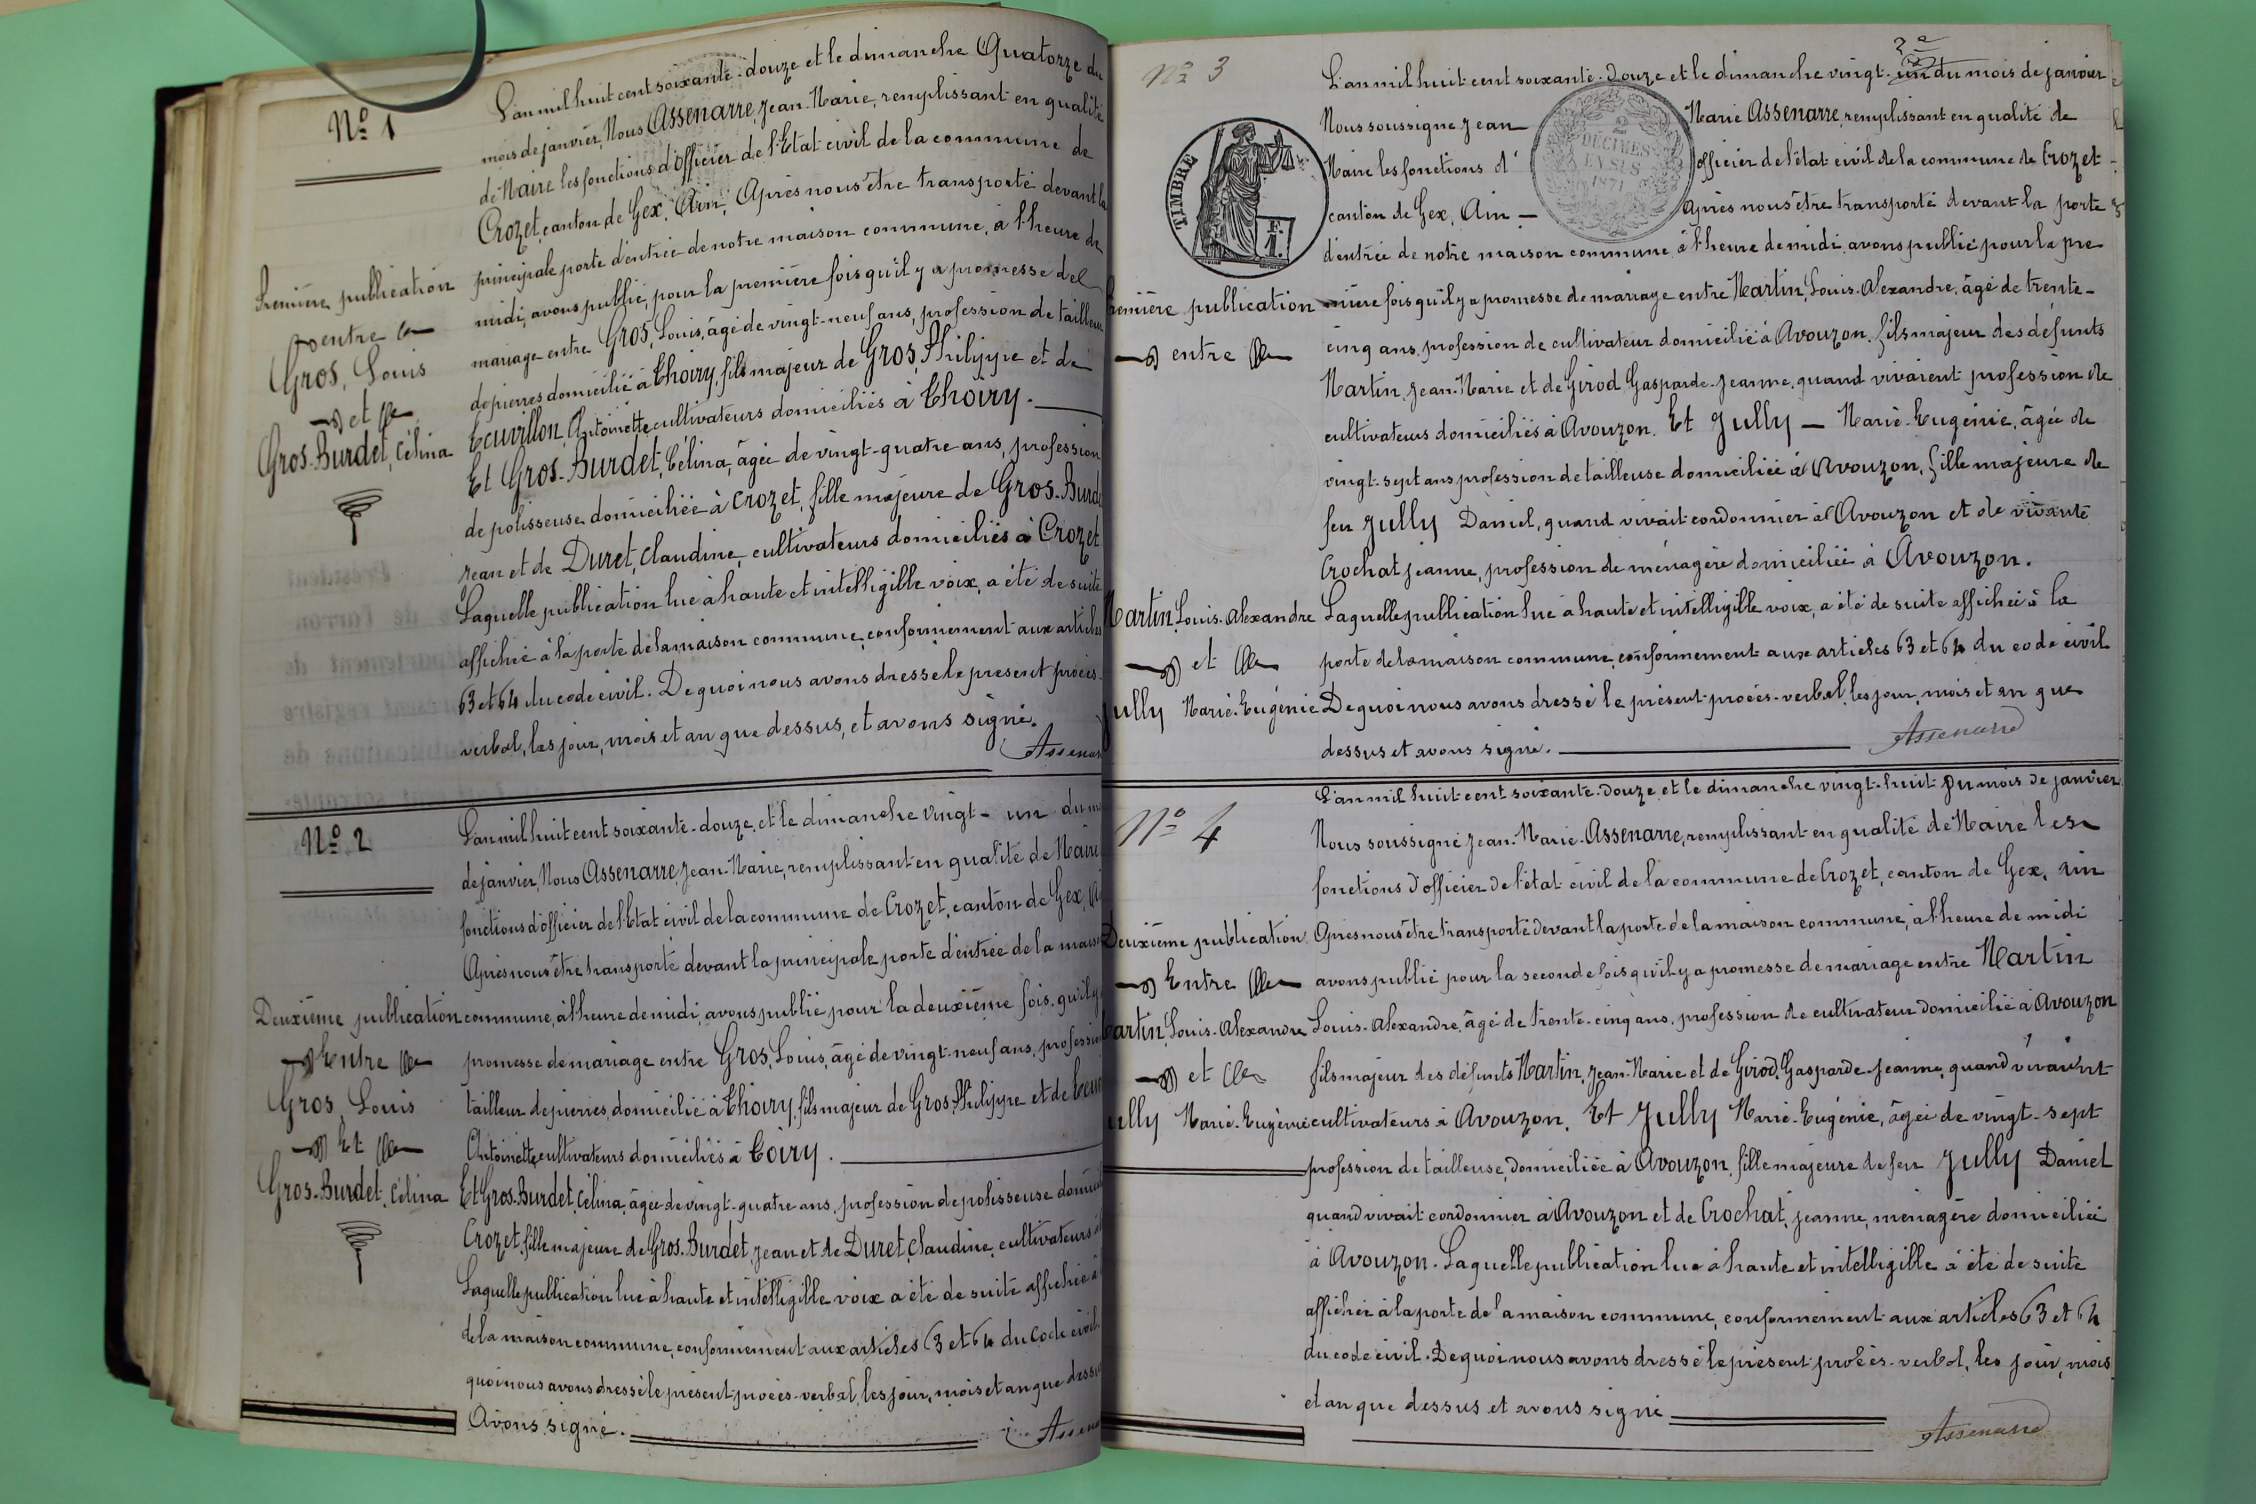 Nº 1
L'an mil huit cent soixante-douze et le dimanche Quatorze du
mois de janvier, Nous Assenarre, Jean-Marie, remplissant en qualité
de Maire les fonctions d'officier de l'Etat civil de la commune de
Crozet, canton de Gex, Ain, Après nous être transporté devant la
principale porte d'entrée de notre maison commune, à l'heure de
midi, avons publié, pour la première fois qu'il y a promesse de
mariage entre Gros, Louis, âgé de vingt-neuf ans, profession de tailleur
de pierres domicilié à Thoiry, fils majeur de Gros, Philippe et de
Ecuvillon, Antoinette cultivateurs domiciliés à Thoiry.
Et Gros-Burdet, Célina, âgée de vingt-quatre ans, profession
de polisseuse domiciliée à Crozet, fille majeure de Gros-Burd
Jean et de Duret, Claudine, cultivateurs domiciliés à Crozet
Laquelle publication lue à haute et intelligible voix, a été de suite
affichée à la porte de la maison commune, conformément aux articles
63 et 64 du code civil. De quoi nous avons dressé le présent procès-
verbal, les jour, mois et an que dessus, et avons signé.
Assenar
Première publication
entre
Gros, Louis
et
Gros-Burdet, Célina
Nº 2
L'an mil huit cent soixante-douze, et le dimanche vingt-un du m
de janvier, Nous Assenarre, Jean-Marie, remplissant en qualité de Maire
fonctions d'officier de l'Etat civil de la commune de Crozet, canton de Gex, Ai
Après nous être transporté devant la principale porte d'entrée de la maiso
commune, à l'heure de midi, avons publié pour la deuxième fois, qu'il y
promesse de mariage entre Gros, Louis, âgé de vingt-neuf ans, profession
tailleur de pierres, domicilié à Thoiry, fils majeur de Gros, Philippe et de Ecuv
Antoinette cultivateurs domiciliés à Toiry.
Et Gros-Burdet, Célina, âgée de vingt-quatre ans, profession de polisseuse domici
Crozet, fille majeure de Gros-Burdet, Jean et de Duret, Claudine, cultivateurs
Laquelle publication lue à haute et intelligible voix a été de suite affichée à
de la maison commune, conformément aux articles 63 et 64 du Code civil.
quoi nous avons dressé le présent procès-verbal les jour, mois et an que dessu
Avons signé.
Assena
Deuxième publication
Entre
Gros, Louis
Et
Gros-Burdet, Célina
Nº 3
L'an mil huit cent soixante-douze et le dimanche vingt-un du mois de janvier
Nous soussigné Jean Marie Assenarre, remplissant en qualité de
Maire les fonctions d'officier de l'état civil de la commune de Crozet
canton de Gex, Ain Après nous être transporté devant la porte
d'entrée de notre maison commune, à l'heure de midi avons publié pour la pre
mière fois qu'il y a promesse de mariage entre Martin, Louis-Alexandre, âgé de trente-
cinq ans, profession de cultivateur domicilié à Avouzon, fils majeur des défunts
Martin, Jean-Marie et de Girod Gasparde-Jeanne, quand vivaient profession de
cultivateurs domiciliés à Avouzon. Et Jully Marie-Eugénie, âgée de
vingt-sept ans profession de tailleuse domiciliée à Avouzon, fille majeure de
feu Jully Daniel, quand vivait cordonnier à Avouzon et de vivante
Crochat Jeanne, profession de ménagère domiciliée à Avouzon.
Laquelle publication lue à haute et intelligible voix, a été de suite affichée à la
porte de la maison commune, conformément aux articles 63 et 64 du code civil
De quoi nous avons dressé le présent procès-verbal, les jour, mois et an que
dessus et avons signé.
Assenarre
TIMBRE
1 F.
2
DÉCIMES
EN SUS
1871
remière publication
entre
Martin, Louis-Alexandre
et
Jully Marie-Eugénie
Nº 4
L'an mil huit cent soixante-douze et le dimanche vingt-huit du mois de janvier
Nous soussigné Jean-Marie-Assenarre, remplissant en qualité de Maire les
fonctions d'officier de l'état civil de la commune de Crozet, canton de Gex, Ain
Après nous être transporté devant la porte de la maison commune, à l'heure de midi
avons publié pour la seconde fois qu'il y a promesse de mariage entre Martin
Louis-Alexandre, âgé de trente-cinq ans, profession de cultivateur domicilié à Avouzon
fils majeur des défunts Martin, Jean-Marie et de Girod, Gasparde-Jeanne, quand vivaient
cultivateurs à Avouzon, Et Jully Marie-Eugénie, âgée de vingt-sept
profession de tailleuse, domiciliée à Avouzon, fille majeure de feu Jully Daniel
quand vivait cordonnier à Avouzon et de Crochat, Jeanne, ménagère domiciliée
à Avouzon. Laquelle publication lue à haute et intelligible a été de suite
affichée à la porte de la maison commune, conformément aux articles 63 et 64
du code civil. De quoi nous avons dressé le présent procès-verbal, les jour, mois
et an que dessus et avons signé
Assenarre
Deuxième publication
Entre
artin, Louis-Alexandre
et
ully Marie-Eugénie